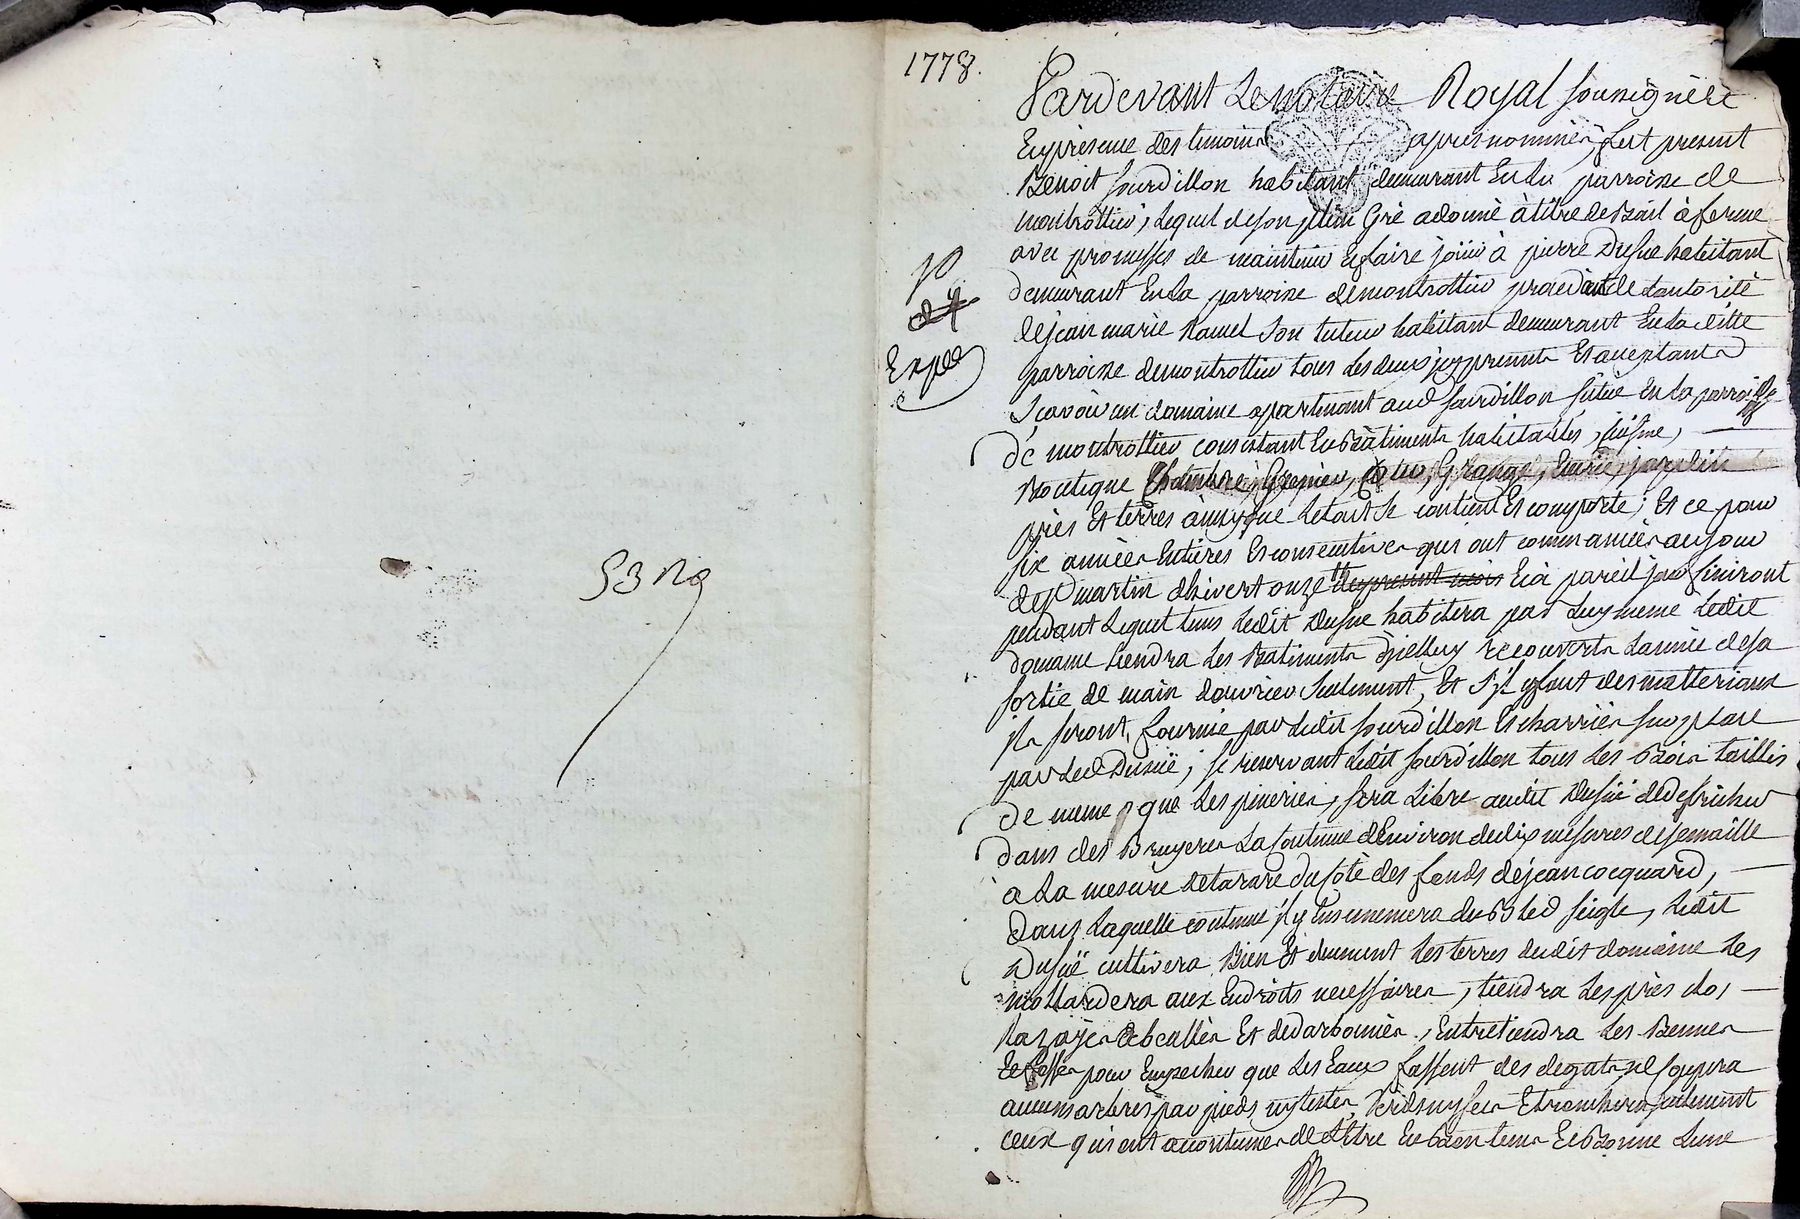 1778.
Pardevant Le notaire Royal soussignéré
En présence des temoins apres nommés, fut present
Benoit sourdillon habitant demeurant En la parroisse de
montrottier, Lequel de son plein Gré adonné à titre de Bail à ferme
avec promesses de maintenir Et faire jouir à pierre Dusue habitant
demeurant En la parroisse de montrottier procedant de L'autorité
de jean marie Ramel son tuteur habitant demeurant En la ditte
parroisse de montrottier tous Les deux icy presents Et aceptants
Scavoir un domaine apartenant aud sourdillon situé En la parroisse
de montrottier consistant En Batiments habitables, cuisine,
Boutique Chambre, Grenier, Grange, Ecurie, jardin
prés Et terres ainsy que Letout se contient Et comporte; Et ce pour
six années Entieres Et consecutives qui ont commancées au jour
de st martin d'hivert onze du present mois Et à pareil jour finiront
pendant Lequel tems Ledit Dusue habitera par Luy meme Ledit
domaine tiendra Les Batiments d'jcelluy recouverts L'année de sa
sortie de main d'ouvrier seulement, Et s'jl y faut des matteriaux
jls seront fournis par Ledit sourdillon Et charriés sur place
par Led Dusué; se reservant Ledit sourdillon tous Les Bois taillis
de meme que Les pineries, sera Libre audit Dusué de defricher
dans des Bruyeres La coutume d'Environ de dix mesures de semaille
à La mesure de tarare du coté des fonds de jean cocquard,
dans Laquelle coutume jl y Ensemencera du Bled seigle, Ledit
Dusué cultivera Bien Et duement Les terres dudit domaine Les
mollardera aux Endroits necessaires, tiendra Les prés clos,
Razoyés Et de darbonnés, Entretiendra Les
pour Empecher que Les Eaux fassent des degats ne coupera
aucuns arbres par pieds ny testes Et tranchera seulement
ceux qui ont acoutumés de L'Etre En bon tems Et Bonne Lune
Expeé